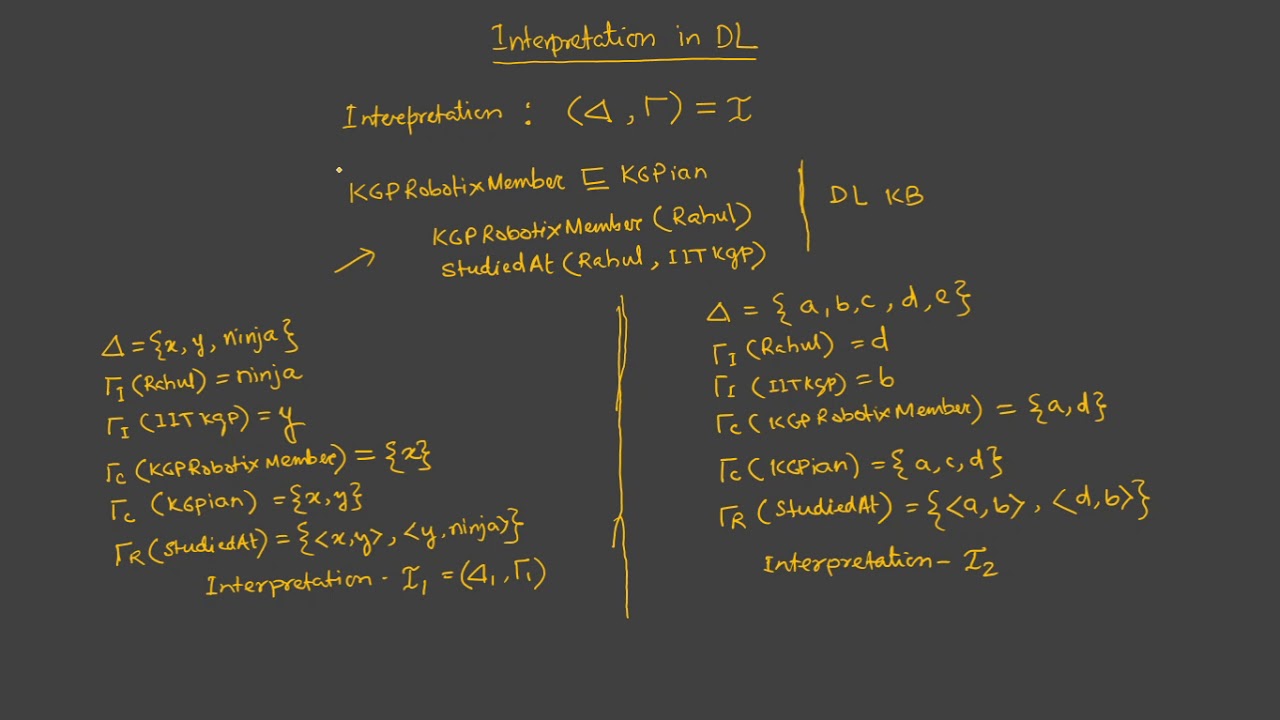 Interpretation in DL
Interepretation : (Δ, Γ) = I
KGPRobotixMember ⊑ KGPian
KGPRobotixMember (Rahul)
StudiedAt (Rahul, IITKgp)
DL KB
Δ = {x, y, ninja}
Γ_I (Rahul) = ninja
Γ_I (IITKgp) = y
Γ_C (KGPRobotixMember) = {x}
Γ_C (KGpian) = {x, y}
Γ_R (StudiedAt) = {<x, y>, <y, ninja>}
Interpretation - I_1 = (Δ_1, Γ_1)
Δ = {a, b, c, d, e}
Γ_I (Rahul) = d
Γ_I (IITKgp) = b
Γ_C (KGPRobotixMember) = {a, d}
Γ_C (KGPian) = {a, c, d}
Γ_R (StudiedAt) = {<a, b>, <d, b>}
Interpretation - I_2